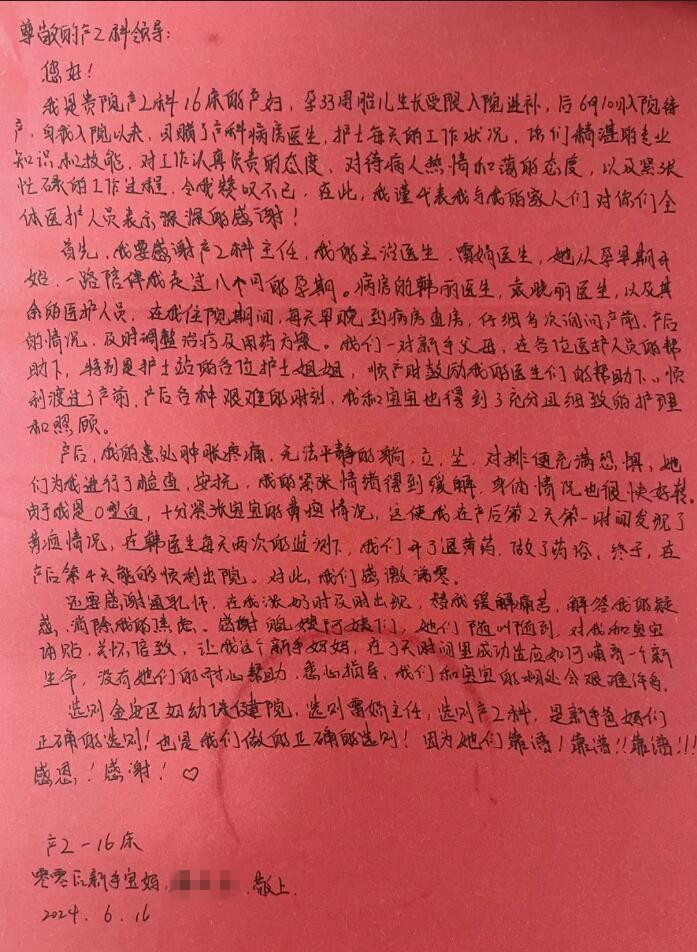 尊敬的产2科领导：
您好！
我是贵院产2科16床的产妇，孕33周胎儿生长受限入院进补，后6月10日入院待
产，自我入院以来，目睹了产科病房医生，护士每天的工作状况，你们精湛的专业
知识和技能，对工作认真负责的态度，对待病人热情和蔼的态度，以及紧张
忙碌的工作过程，令我赞叹不已，在此，我谨代表我与我的家人们对你们全
体医护人员表示深深的感谢！
首先，我要感谢产2科主任，我的主治医生，雷娟医生，她从孕早期开
始，一路陪伴我走过八个月的孕期。病房的韩丽医生，袁晓丽医生，以及其
余的医护人员，在我住院期间，每天早晚到病房查房，仔细多次询问产前、产后
的情况，及时调整治疗及用药方案。我们一对新手父母，在各位医护人员的帮
助下，特别是护士站的各位护士姐姐，顺产时鼓励我的医生们的帮助下，顺
利渡过了产前，产后各种艰难的时刻，我和宝宝也得到了充分且细致的护理
和照顾。
产后，我的患处肿胀疼痛，无法平静的躺，立，坐，对排便充满恐惧，她
们为我进行了检查，安抚，我的紧张情绪得到缓解，身体情况也很快好转
由于我是O型血，十分紧张宝宝的黄疸情况，这使我在产后第2天第一时间发现了
黄疸情况，在韩医生每天两次的监测下，我们开了退黄药，做了药浴，终于，在
产后第4天能够顺利出院。对此，我们感激涕零。
还要感谢通乳师，在我涨奶时及时出现，替我缓解痛苦，解答我的疑
惑，消除我的焦虑。感谢 阿姨们，她们随叫随到，对我和宝宝
体贴，关怀，倍致，让我这个新手妈妈，在3天时间里成功适应如何哺育一个新
生命，没有她们的耐心帮助，悉心指导，我们和宝宝的相处会艰难许多。
选则金安区妇幼保健院，选则雷娟主任，选则产2科，是新手爸妈们
正确的选则！也是我们做的正确的选则！因为她们靠谱！靠谱！！靠谱！！！
感恩！感谢！♡
产2-16床
零零后新手宝妈， .敬上.
2024.6.16